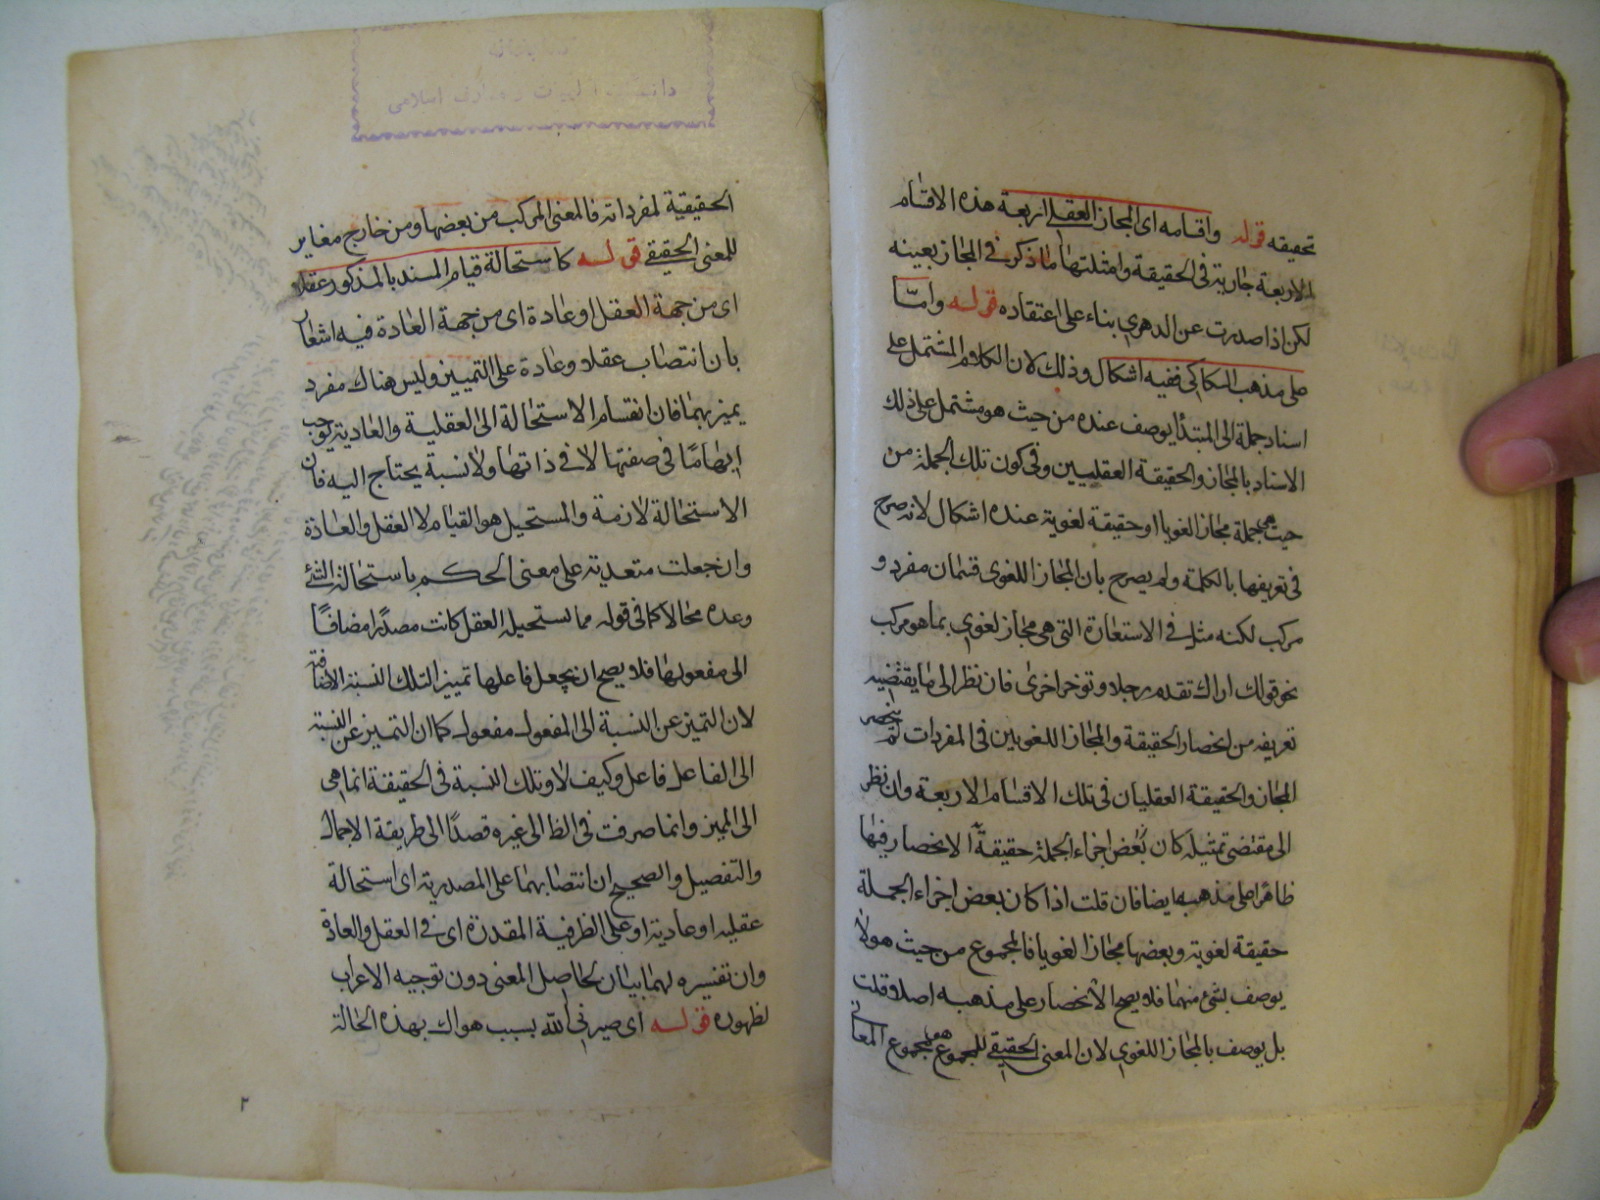 تحقيقه قوله واقسامه اى المجاز العقلى اربعة هذه الاقسام
الاربعة جارية فى الحقيقة وامثلتها ما ذكر فى المجاز بعينه
لكن اذا صدرت عن الدهرى بناء على اعتقاده قوله وامّا
على مذهب السكاكى ففيه اشكال وذلك لان الكلام المشتمل على
اسناد جملة الى المبتدأ يوصف عنده من حيث هو مشتمل على ذلك
الاسناد بالمجاز والحقيقة العقليين وفى كون تلك الجملة من
حيث هى جملة مجازا لغويا او حقيقة لغوية عنده اشكال لانه صرح
فى تعريفها بالكلمة ولم يصرح بان المجاز اللغوى قسمان مفرد و
مركب لكنه مثل فى الاستعارة التى هى مجاز لغوى بما هو مركب
نحو قولك اراك تقدم رجلا وتؤخر اخرى فان نظر الى ما يقتضيه
تعريفه من انحصار الحقيقة والمجاز اللغويين فى المفردات لم ينحصر
المجاز والحقيقة العقليان فى تلك الاقسام الاربعة وان نظر
الى مقتضى تمثيله كان بعض اجزاء الجملة حقيقة الانحصار فيها
ظاهرا على مذهبه ايضا فان قلت اذا كان بعض اجزاء الجملة
حقيقة لغوية وبعضها مجازا لغويا فالمجموع من حيث هو لا
يوصف بشئ منهما فلا يصح الانحصار على مذهبه اصلا قلت
بل يوصف بالمجاز اللغوى لان المعنى الحقيقى للمجموع هو مجموع المعانى
الحقيقية لمفرداته فالمعنى المركب من بعضها ومن خارج مغاير
للمعنى الحقيقى قوله كاستحالة قيام المسند بالمذكور عقلا
اى من جهة العقل او عادة اى من جهة العادة فيه اشعار
بان انتصاب عقلا وعادة على التمييز وليس هناك مفرد
يميز بهما فان انقسام الاستحالة الى العقلية والعادية يوجب
ابهاما فى صفتها لا فى ذاتها ولا نسبة يحتاج اليه فان
الاستحالة لازمة والمستحيل هو القيام لا العقل والعادة
وان جعلت متعدية على معنى الحكم باستحالة الشئ
وعده محالا كما فى قوله مما يستحيله العقل كانت مصدرا مضافًا
الى مفعولها فلا يصح ان يجعل فاعلها تمييزا لتلك النسبة الاضافة
لان التميز عن النسبة الى المفعول مفعول كما ان التميز عن النسبة
الى الفاعل فاعل وكيف لا وتلك النسبة فى الحقيقة انما هى
الى المميز وانما صرفت فى الظ الى غيره قصدًا الى طريقة الاجمال
والتفصيل والصحيح ان انتصابهما على المصدرية اى استحالة
عقلية او عادية او على الظرفية المقدرة اى فى العقل والعادة
وان تفسيره لهما بيان لحاصل المعنى دون توجيه الاعراب
لظهوره قوله اى صيرنى الله بسبب هواك بهذه الحالة
٢